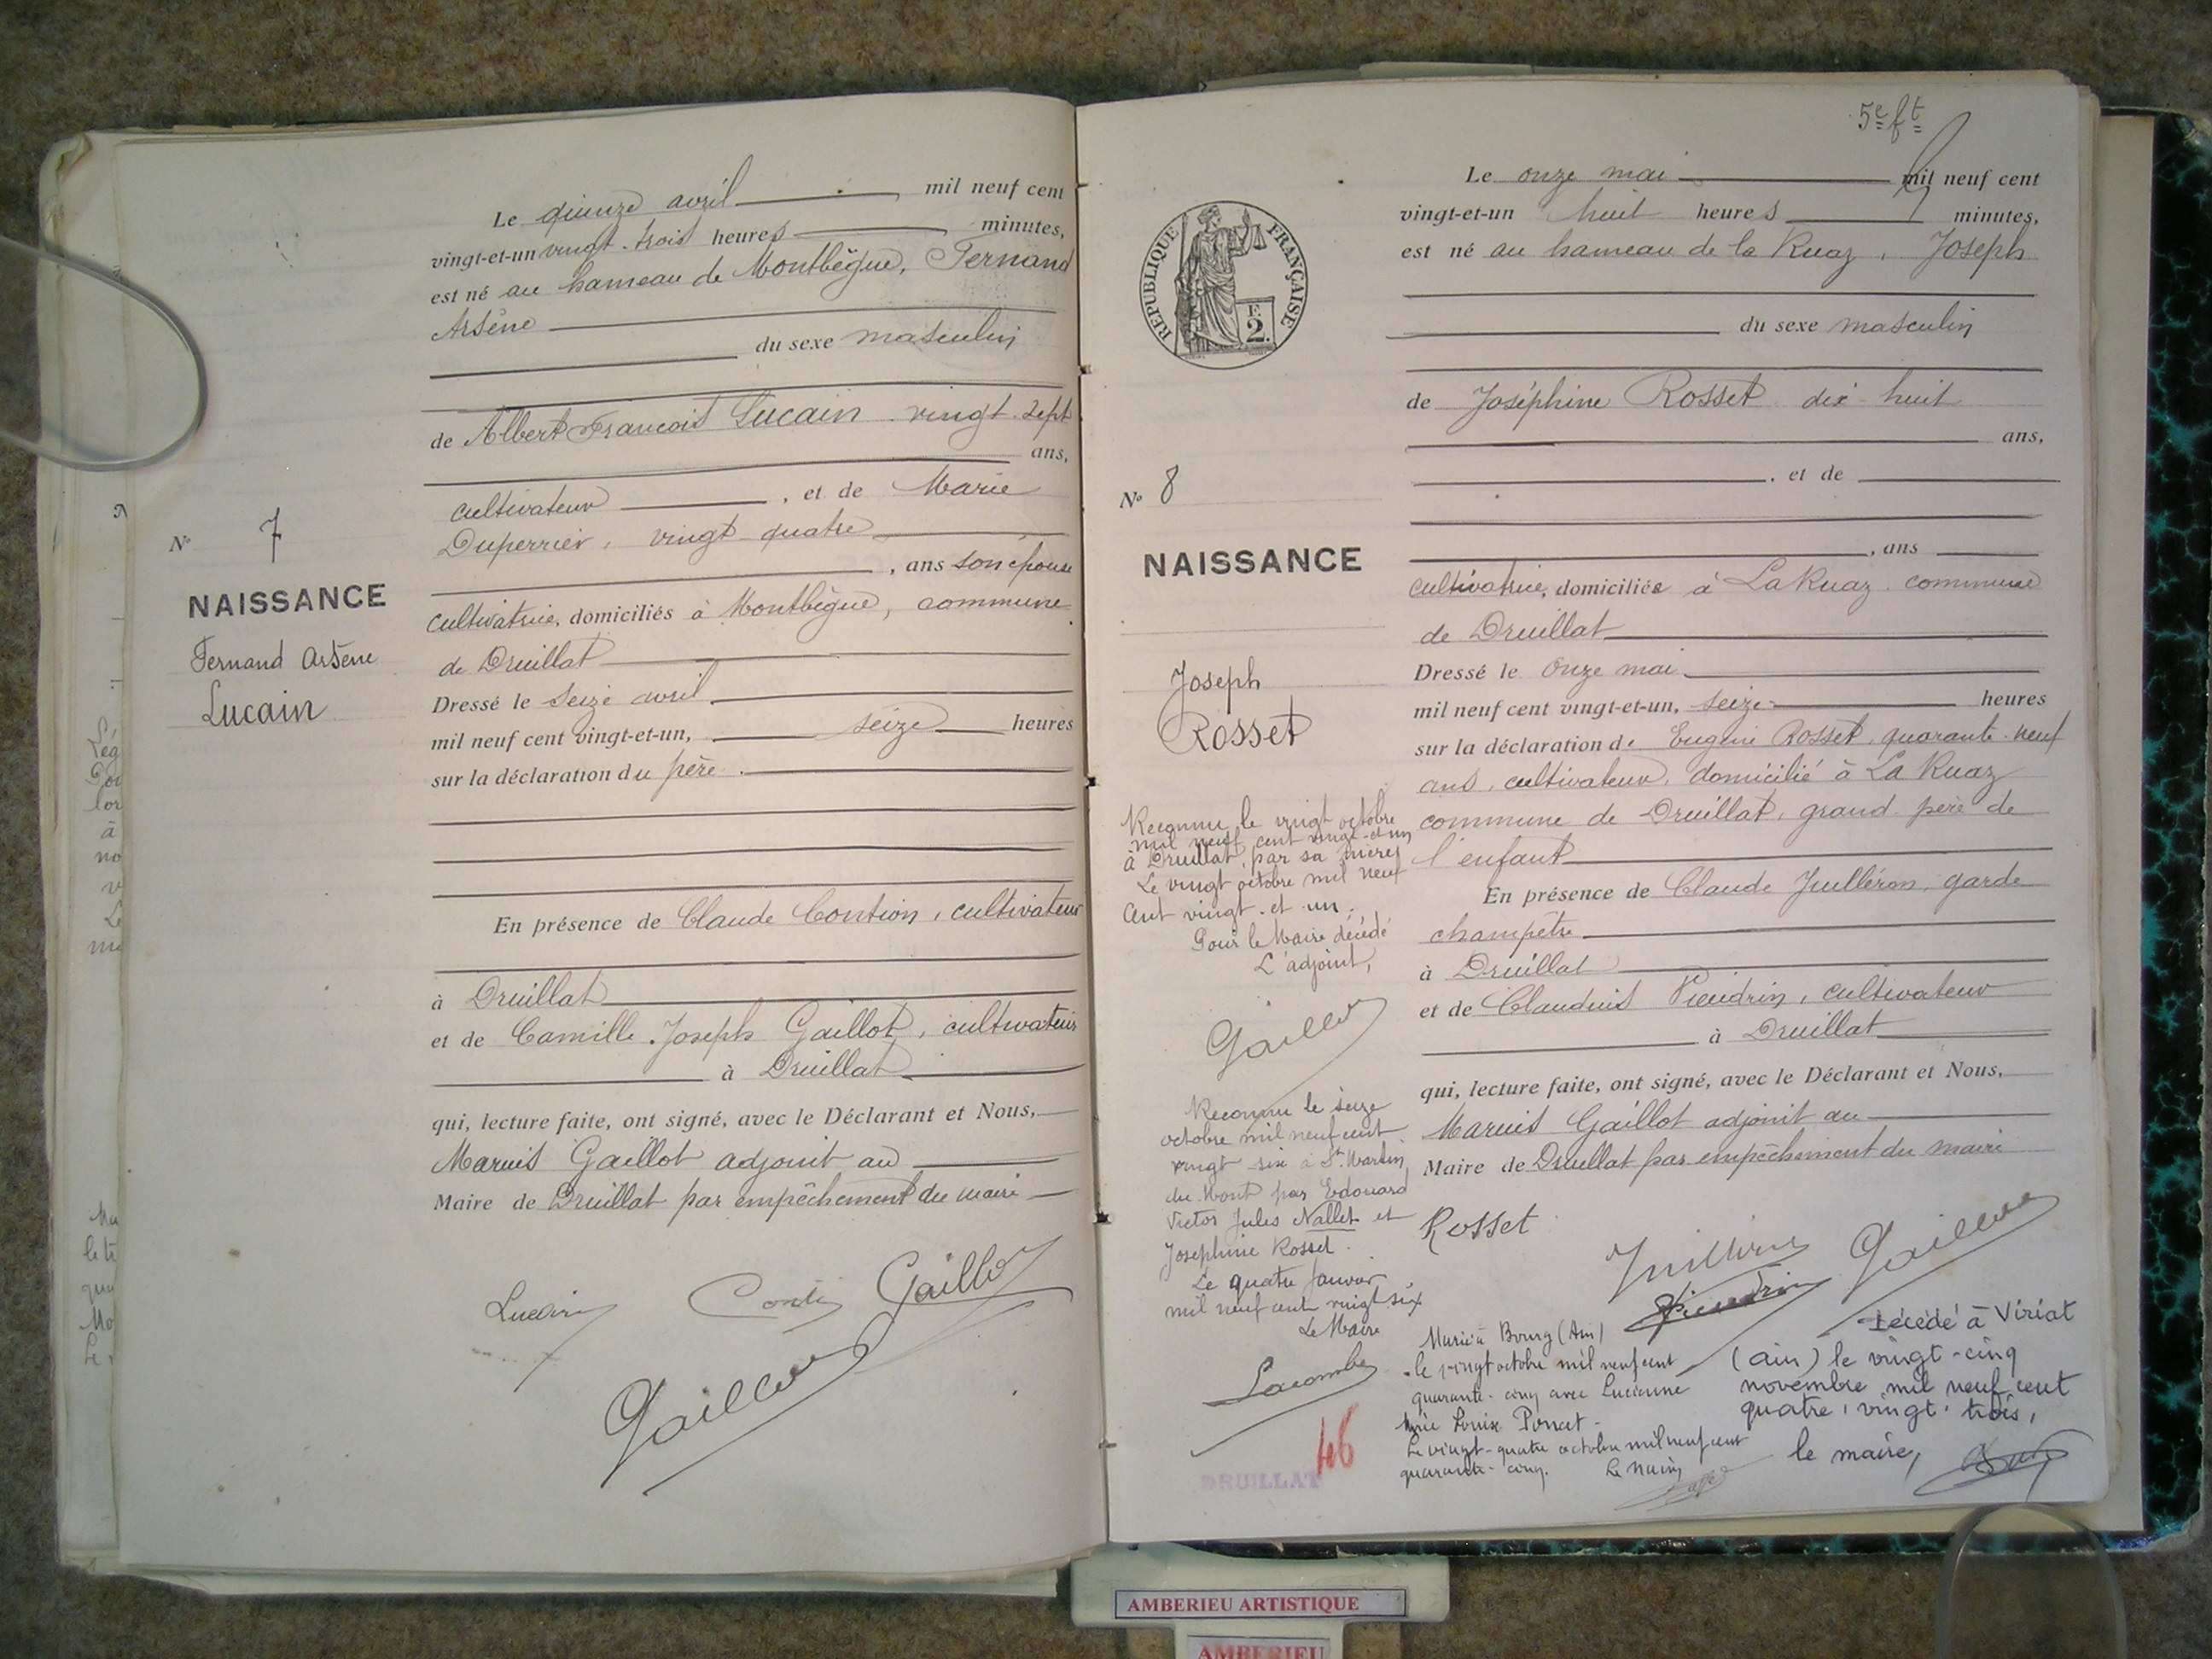 Le quinze avril mil neuf cent
vingt-et-un vingt-trois heures minutes,
est né au hameau de Montbègue, Fernand
Arsène
du sexe masculin
de Albert François Lucain vingt-sept
ans,
cultivateur, et de Marie
Duperrier, vingt-quatre
, ans son épouse
cultivatrice, domiciliés à Montbègue, commune
de Druillat
Dressé le seize avril
mil neuf cent vingt-et-un, seize heures
sur la déclaration du père.
En présence de Claude Contion, cultivateur
à Druillat
et de Camille Joseph Gaillot, cultivateur
à Druillat
qui, lecture faite, ont signé, avec le Déclarant et Nous,
Marius Gaillot adjoint au
Maire de Druillat par empêchement du maire
Lucain Gaillot
Gaillot
N° 7
NAISSANCE
Fernand Arsène
Lucain
5e ft
Le onze mai mil neuf cent
vingt-et-un huit heures minutes,
est né au hameau de la Ruaz, Joseph
du sexe masculin
de Joséphine Rosset dix-huit
ans,
, et de
, ans
cultivatrice, domiciliée à La Ruaz commune
de Druillat
Dressé le onze mai
mil neuf cent vingt-et-un, seize heures
sur la déclaration de Eugène Rosset, quarante-neuf
ans, cultivateur, domicilié à La Ruaz
commune de Druillat, grand père de
l'enfant
En présence de Claude Juilléron, garde
champêtre
à Druillat
et de Claudius Pieudrin, cultivateur
à Druillat
qui, lecture faite, ont signé, avec le Déclarant et Nous,
Marius Gaillot adjoint au
Maire de Druillat par empêchement du maire
Rosset Gaillot
REPUBLIQUE FRANÇAISE
F.
2.
N° 8
NAISSANCE
Joseph
Rosset
Reconnu le vingt octobre
mil neuf cent vingt-et-un
à Druillat, par sa mère
Le vingt octobre mil neuf
cent vingt-et-un.
Pour le Maire décédé
L'adjoint,
Gaillot
Reconnu le seize
octobre mil neuf cent
vingt six à St Martin
du Mont par Edouard
Victor Jules Nallet et
Joséphine Rosset.
Le quatre Janvier
mil neuf cent vingt six
Le Maire
Lacombe
46
DRUILLAT
Marié à Bourg (Ain)
le vingt octobre mil neuf cent
quarante-cinq avec Lucienne
Marie Louise Poncet.
Le vingt-quatre octobre mil neuf cent
quarante-cinq. Le Maire
Décédé à Viriat
(Ain) le vingt-cinq
novembre mil neuf cent
quatre-vingt-trois,
le maire,
AMBERIEU ARTISTIQUE
AMBERIEU